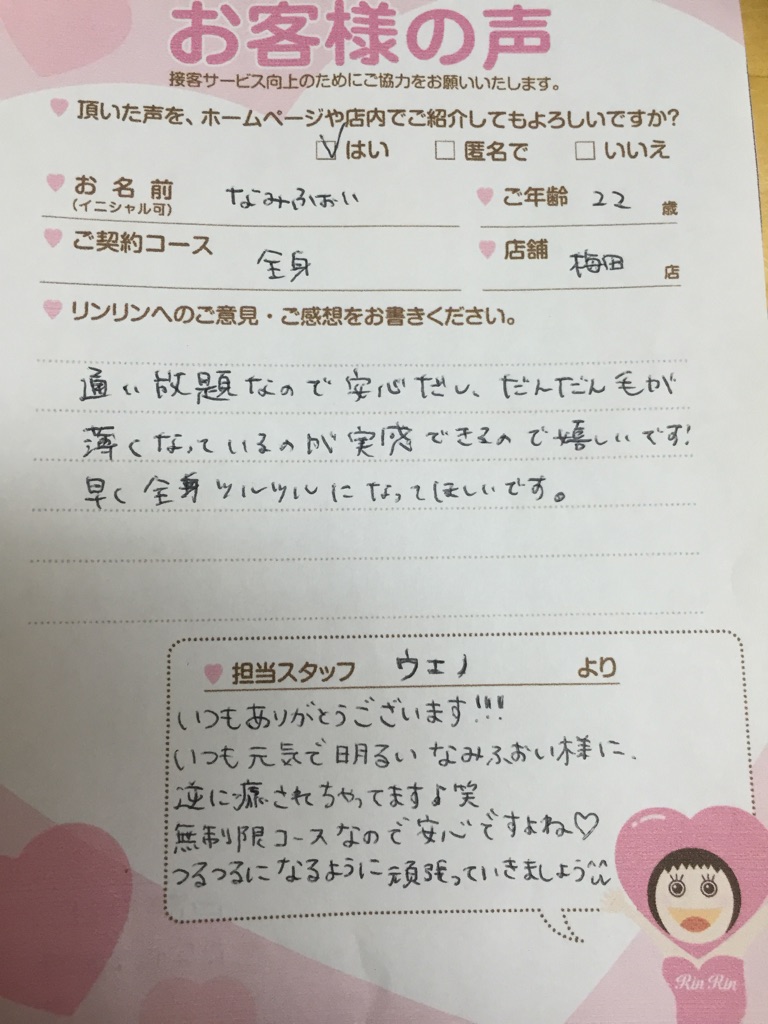 お客様の声
接客サービス向上のためにご協力をお願いいたします。
頂いた声を、ホームページや店内でご紹介してもよろしいですか?
はい 匿名で いいえ
お名前 なみふぉい ご年齢 22 歳
(イニシャル可)
ご契約コース 全身 店舗 梅田 店
リンリンへのご意見・ご感想をお書きください。
通い放題なので安心だし、だんだん毛が
薄くなっているのが実感できるので嬉しいです!
早く全身ツルツルになってほしいです。
担当スタッフ ウエノ より
いつもありがとうございます!!!
いつも元気で明るいなみふぉい様に、
逆に癒されちゃってます♪笑
無制限コースなので安心ですよね♡
つるつるになるように頑張っていきましょう^^
Rin Rin